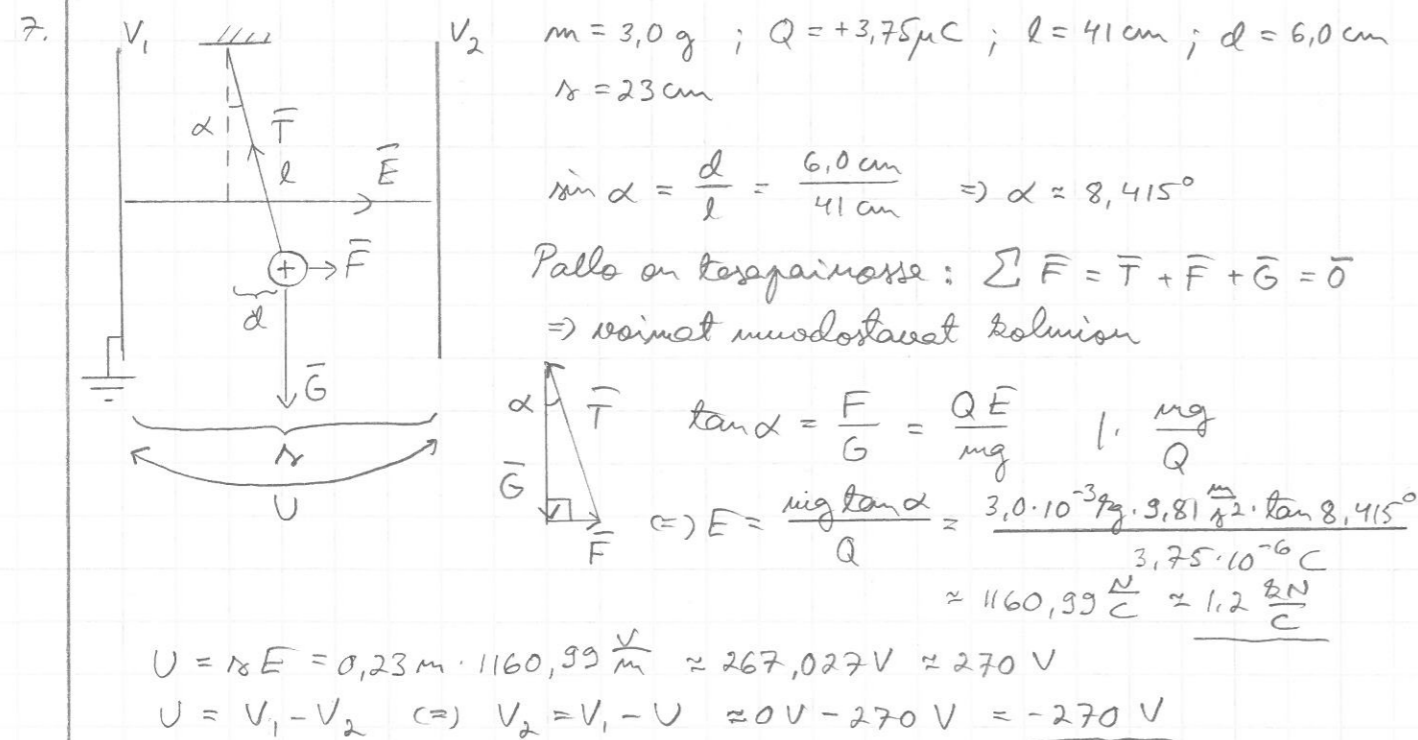 7.
V₁ V₂ m = 3,0 g ; Q = +3,75μC ; l = 41 cm ; d = 6,0 cm
s = 23 cm
α T̄
l Ē
sin α = d/l = 6,0 cm / 41 cm ⇒ α ≈ 8,415°
+ F̄
d
Pallo on tasapainossa : ∑ F̄ = T̄ + F̄ + Ḡ = 0̄
⇒ voimat muodostavat kolmion
Ḡ
s
U
α T̄
Ḡ
F̄
tan α = F/G = QE/mg |· mg/Q
⇔ E = mg tan α / Q = 3,0·10⁻³ kg · 9,81 m/s² · tan 8,415° / 3,75·10⁻⁶ C
≈ 1160,99 N/C ≈ 1,2 kN/C
U = sE = 0,23 m · 1160,99 V/m ≈ 267,027 V ≈ 270 V
U = V₁ - V₂ ⇔ V₂ = V₁ - U ≈ 0 V - 270 V = -270 V